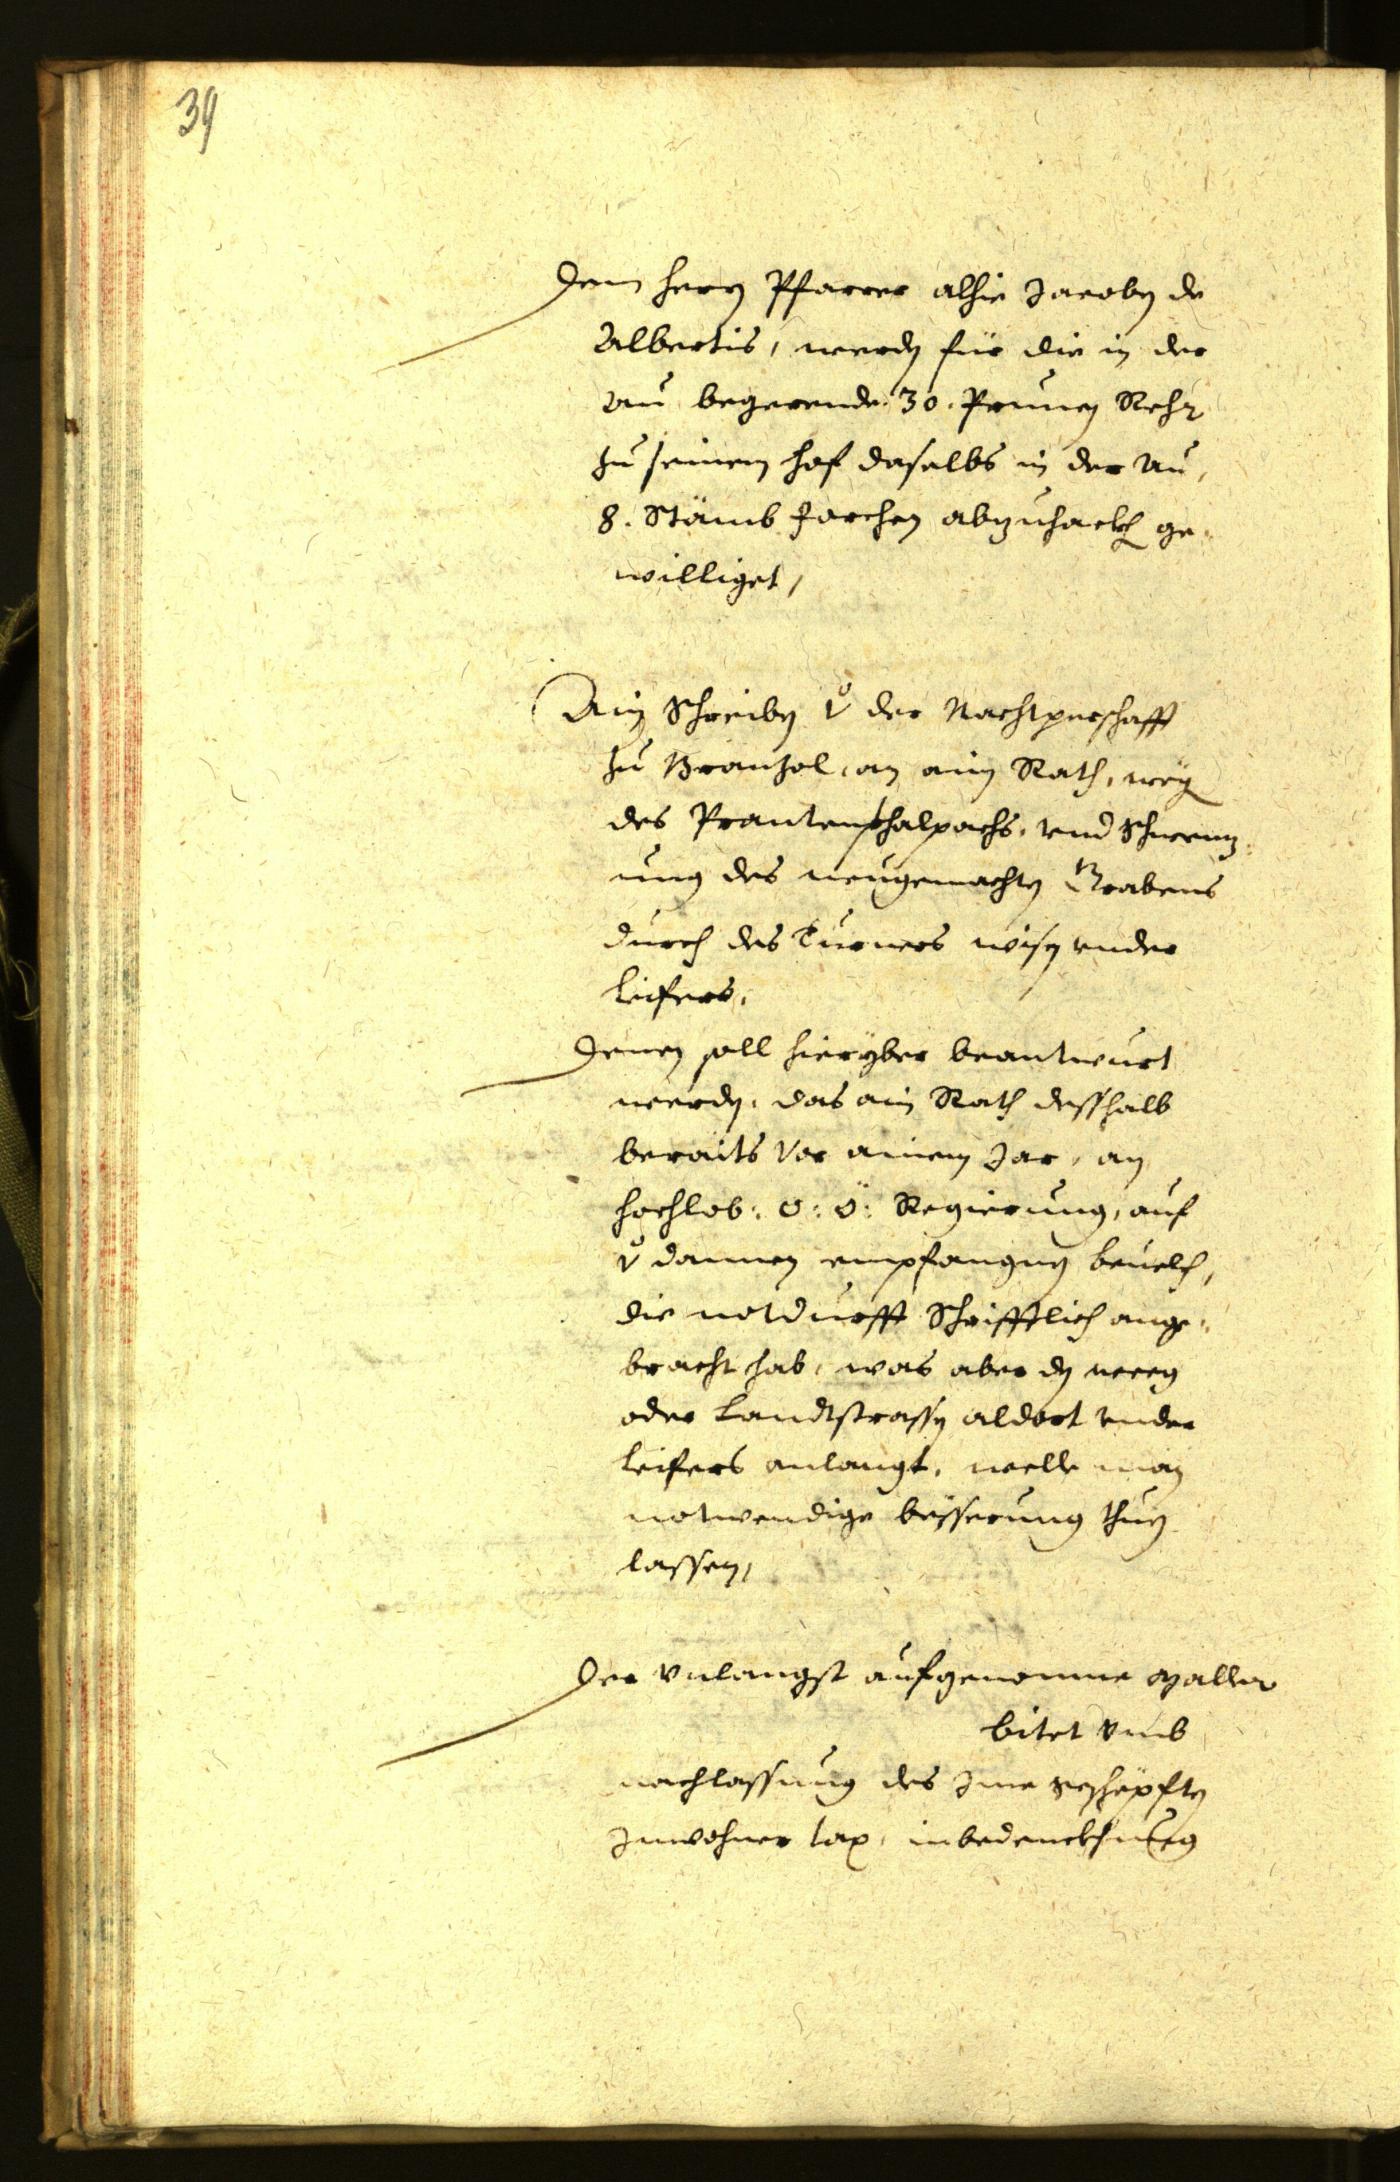 39
Dem herrn Pfarrer alhie Jacoben de
Albertis, werden für die in der
Au begerende 30. Prunen Rehr
zu seinem hof daselbs in der Au,
8. Stämb Forchen abzuhackhen ge-
williget,
Ain Schreiben von der Nachtperschafft
zu Branzol, an ain Rath, wegen
des Prantenthalpachs, vnd
ung des neugemachten Grabens
durch des Turners wisen vnder
Leifers.
Denen soll hieryber beantwurt
werden, das ain Rath desshalb
beraits vor ainem Jar, an
hochlob: O: Ö: Regierung, auf
von dannen empfangnen beuelch,
die notdurfft Schrifftlich ange-
bracht hab, was aber den weeg
oder Landtstrassen aldort vnder
Leifers anlangt, welle man
notwendige besserung thuen
lassen,
Der vnlangst aufgenomne Maller
bitet vmb
nachlassung des Ime geschöpften
Inwohner tax, in bedenckhung